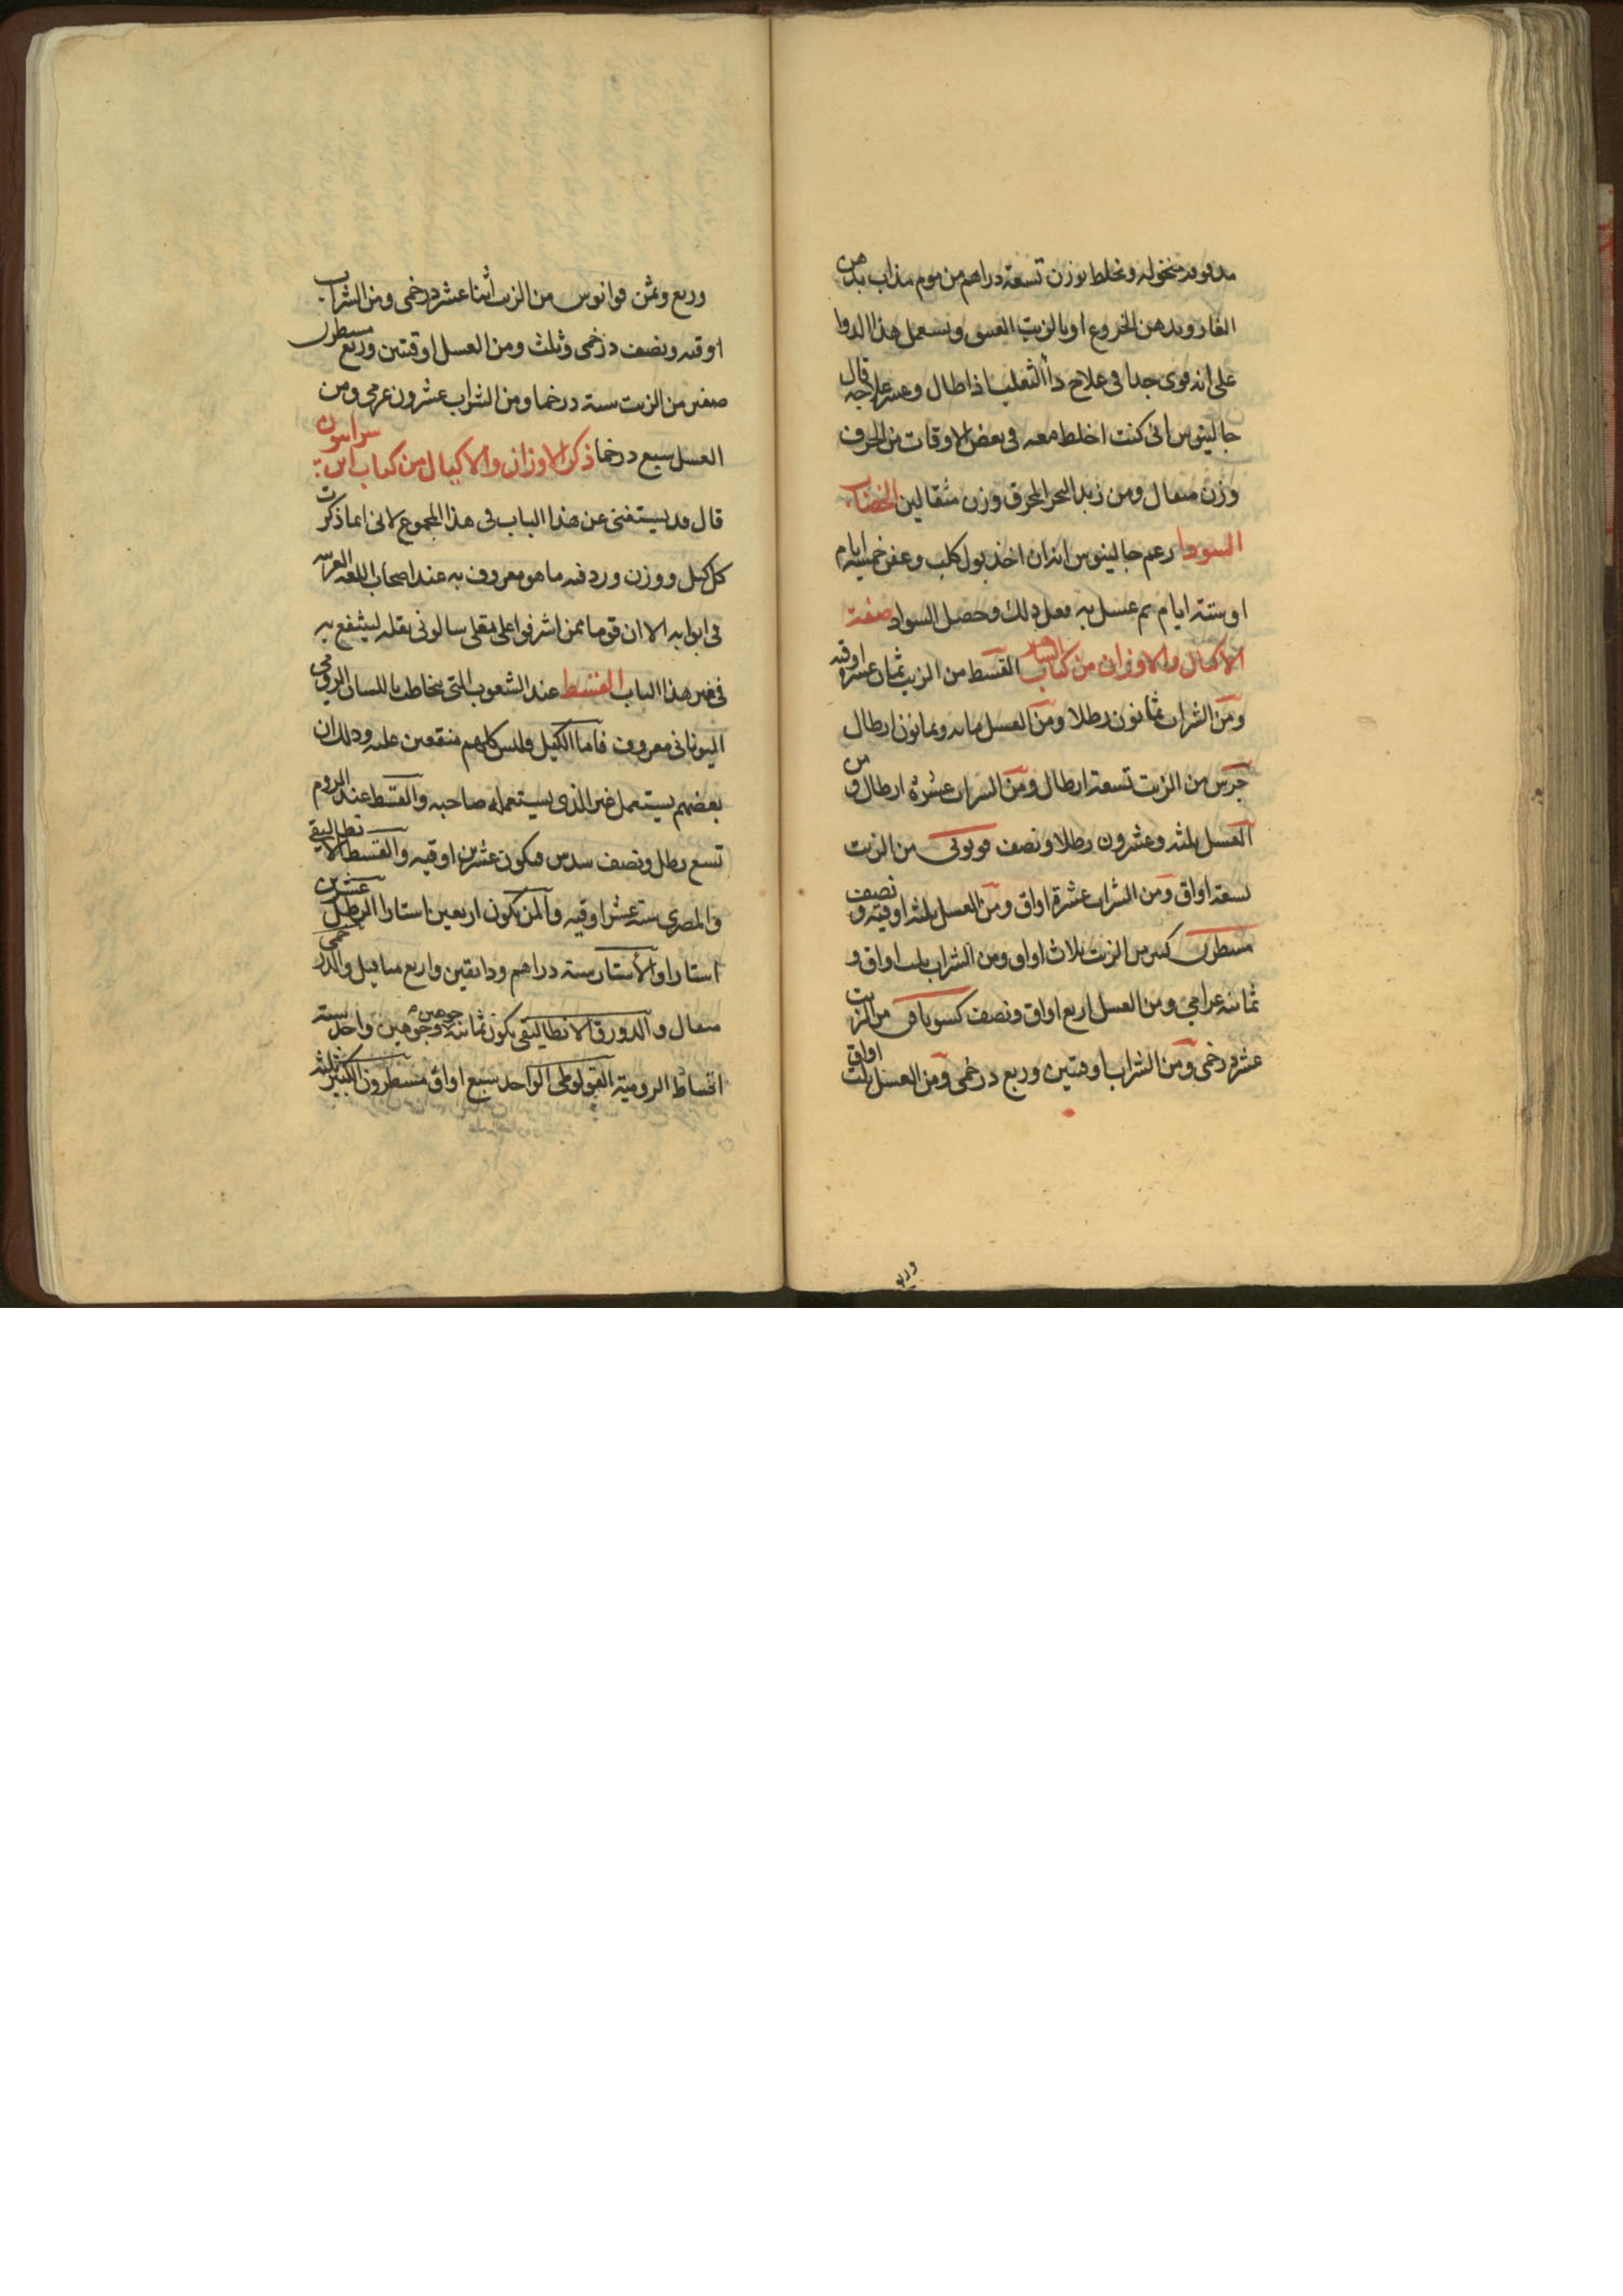 مدقوقه منخوله ونخلط بوزن تسعة دراهم من موم مذاب بدهن
الغار وبدهن الخروع او بالزيت العتيق ويستعمل هذا الدوا
على انه قوى جدا فى علاج دأ الثعلب اذا طال وعسر علاجه قال
جالينوس انى كنت اخلط معه فى بعض الاوقات من الحرف
وزن مثقال ومن زبد البحر المحرق وزن مثقالين الخضاب
السودا زعم جالينوس انه ان اخذ بول كلب وعفن خمسة ايام
او ستة ايام ثم غسل به فعل ذلك وحصل السواد صفة
الاكيال والاوزان من كتاب القسط من الزيت ثمان عشرة اوقيه
ومن الشراب ثمانون رطلا ومن العسل مايه وثمانون ارطال
جرس من الزيت تسعة ارطال ومن الشراب عشرة ارطال ومن
العسل ثلثه وعشرون رطلا ونصف من الزيت
تسعة اواق ومن الشراب عشرة اواق ومن العسل ثلثه اوقيه ونصف
مسطرن كبير من الزيت ثلاث اواق ومن الشراب ثلث اواق و
ثمانيه غرامى ومن العسل اربع اواق ونصف من الزيت
عشر درخمى ومن الشراب اوقتين وربع درخمى ومن العسل ثلث اواق
وربع
وربع وثمن قوانوس من الزيت اثنا عشر درخمى ومن الشراب
اوقيه ونصف درخمى وثلث ومن العسل اوقتين وربع مسطرن
صغير من الزيت ستة درخما ومن الشراب عشرون غرمى ومن
العسل سبع درخما ذكر الاوزان والاكيال من كتاب ابن سرابيون
قال قد يستغنى عن هذا الباب فى هذا المجموع لانى انما ذكرت
كل كيل ووزن وردفه ما هو معروف به عند اصحاب اللغه العربيه
فى ابوابه الا ان قوما ممن اشرفوا على نقلى سالونى نقله لينتفع به
فى غير هذا الباب القسط عند الشعوب التى تخاطب باللسان الرومى
اليونانى معروف فاما الكيل فليس كلهم متفقين عليه وذلك ان
بعضهم يستعمل غير الذى يستعمله صاحبه والقسط عند الروم
تسع رطل ونصف سدس فيكون عشرين اوقيه والقسط الانطاليقى
والمصرى ستة عشر اوقيه والمن يكون اربعين استارا الرطل عشرين
استارا والاستار ستة دراهم ودانقين واربع مثاقيل والدرخمى
مثقال والدورق الانطاليقى يكون ثمانية جوهين وجوهين واحد ستة
اقساط الرومية القولوطى الواحد سبع اواق مسطرون الكبير ثلثه